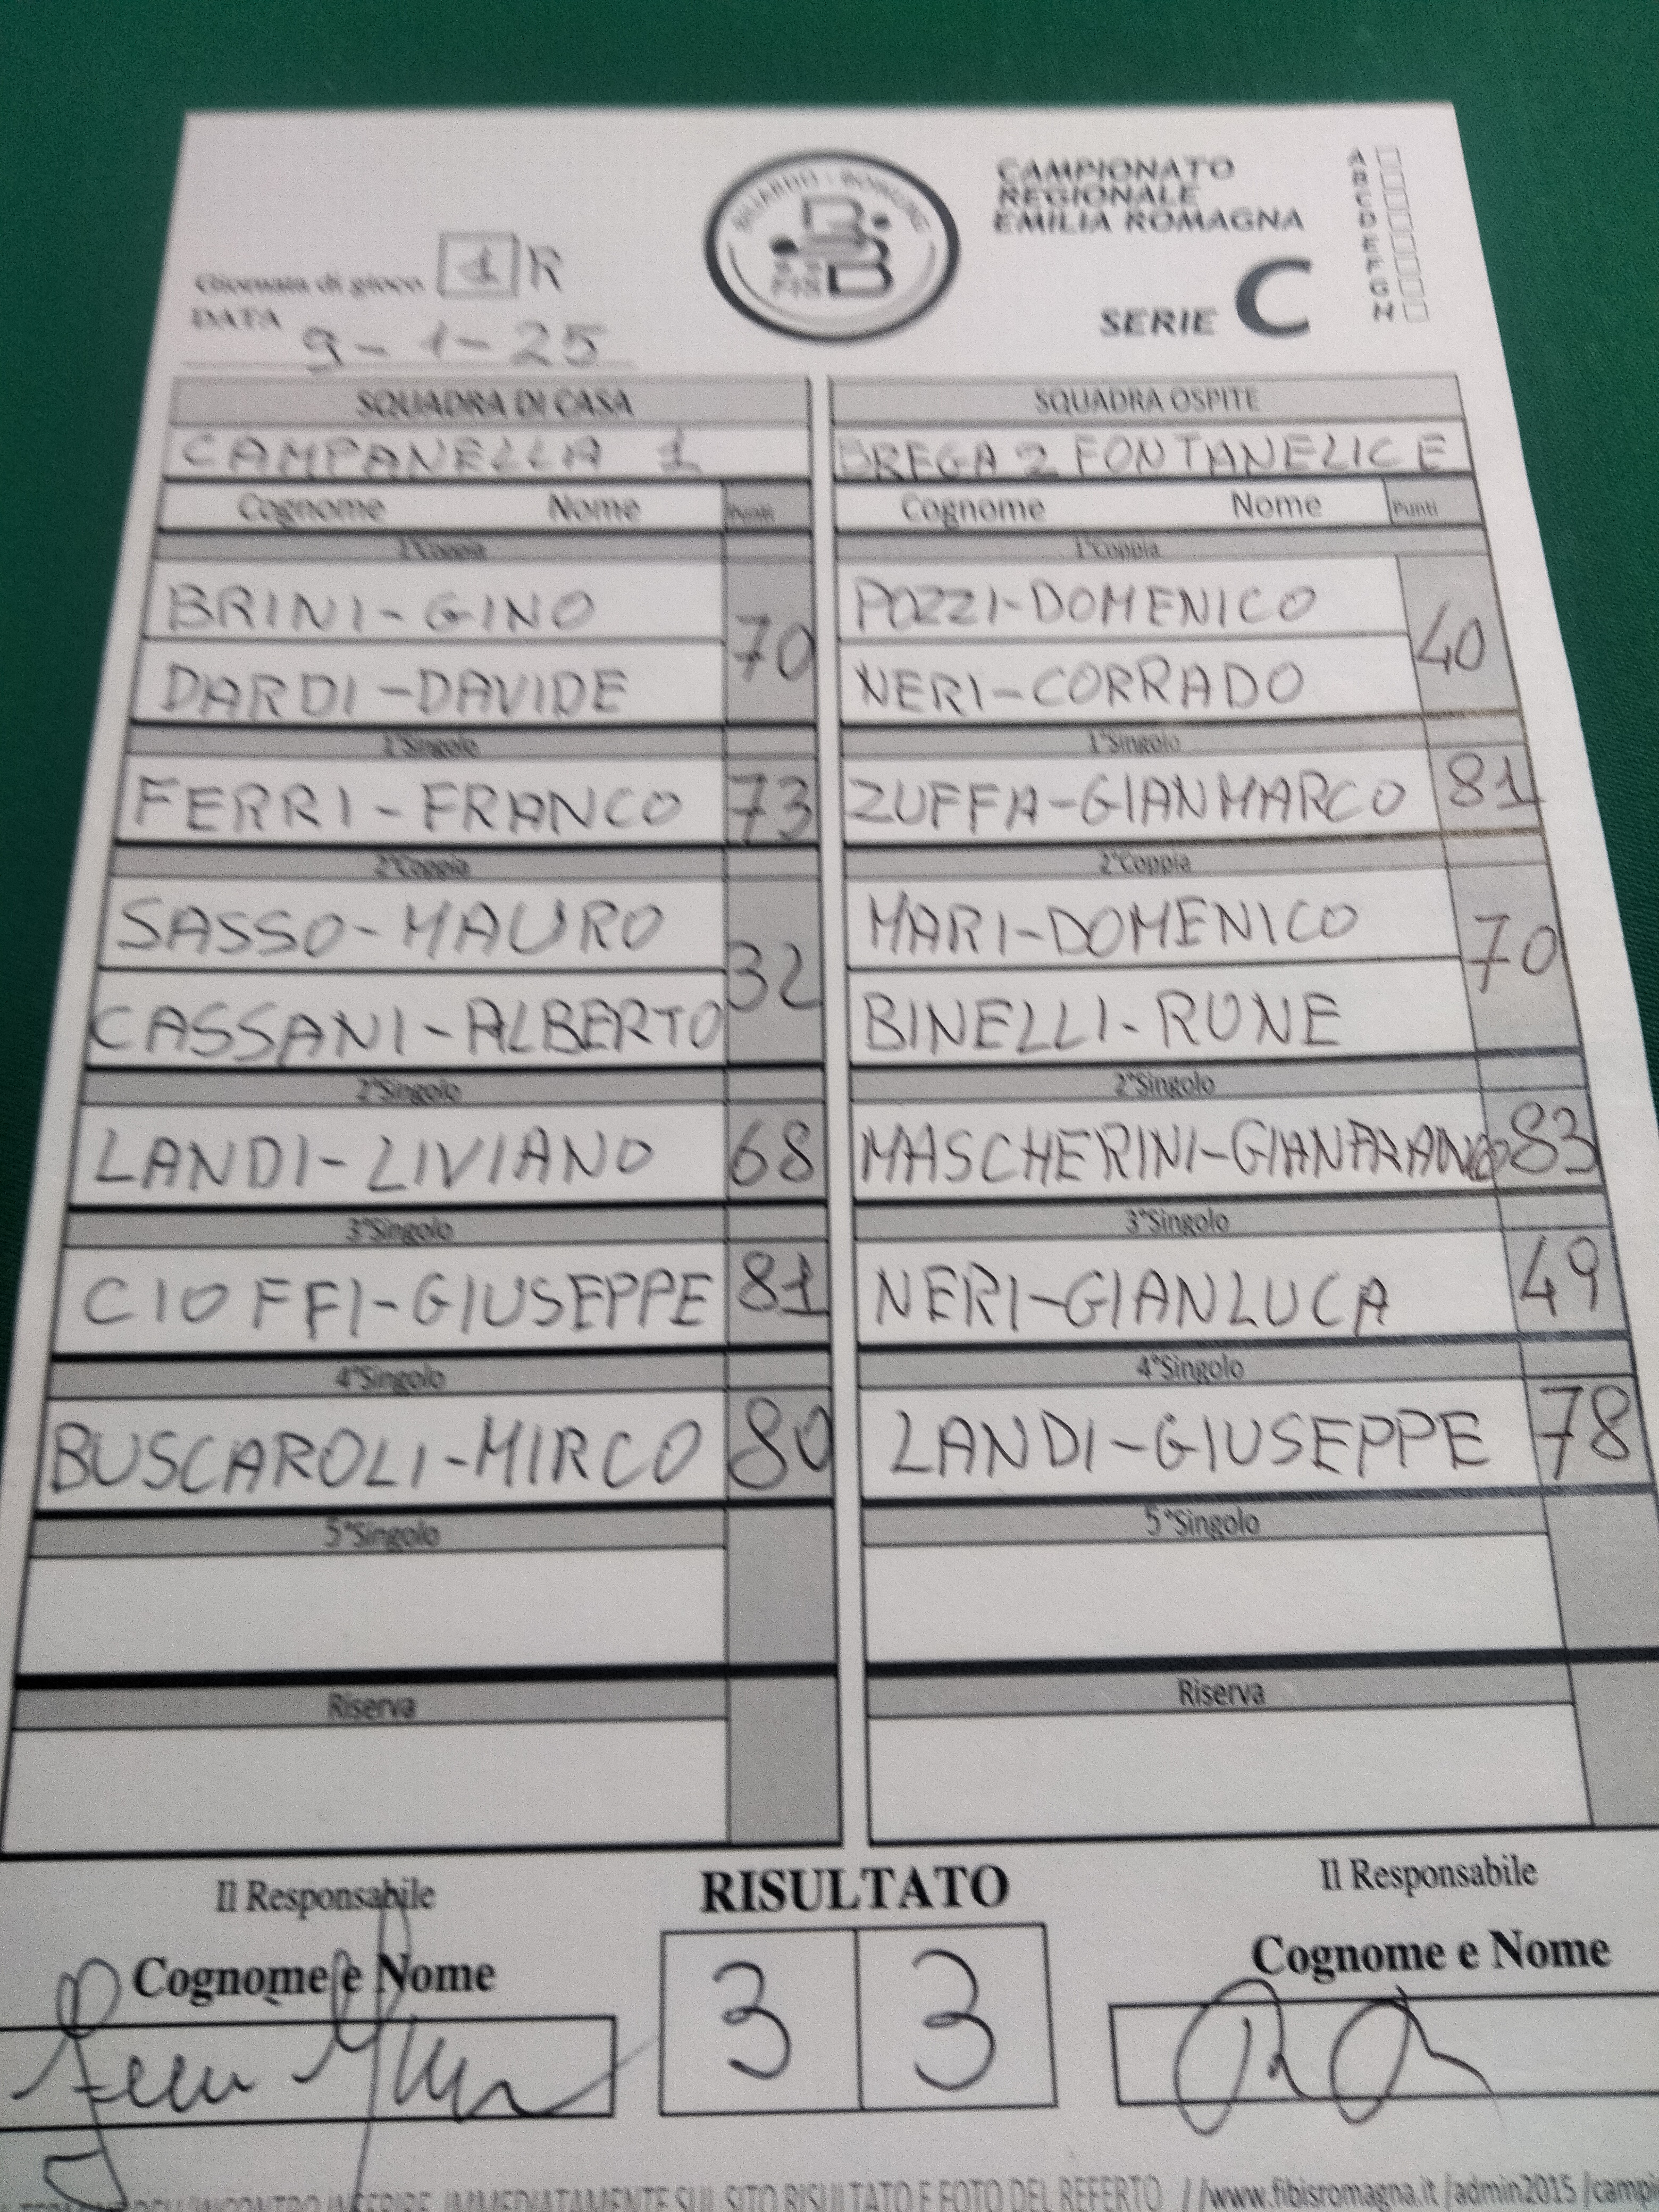 BILIARDO - BOWLING
CAMPIONATO
REGIONALE
EMILIA ROMAGNA
SERIE C
A
B
C
D
E
F
G
H
Giornata di gioco 1 R
DATA 9-1-25
SQUADRA DI CASA
CAMPANELLA 1
Cognome Nome Punti
1°Coppia
BRINI-GINO
DARDI-DAVIDE
70
1°Singolo
FERRI-FRANCO 73
2°Coppia
SASSO-MAURO
CASSANI-ALBERTO
32
2°Singolo
LANDI-LIVIANO 68
3°Singolo
CIOFFI-GIUSEPPE 81
4°Singolo
BUSCAROLI-MIRCO 80
5°Singolo
Riserva
SQUADRA OSPITE
BREGA 2 FONTANELICE
Cognome Nome Punti
1°Coppia
POZZI-DOMENICO
NERI-CORRADO
40
1°Singolo
ZUFFA-GIANMARCO 81
2°Coppia
MARI-DOMENICO
BINELLI-RUNE
70
2°Singolo
MASCHERINI-GIANFRANCO 83
3°Singolo
NERI-GIANLUCA 49
4°Singolo
LANDI-GIUSEPPE 78
5°Singolo
Riserva
Il Responsabile
Cognome e Nome
RISULTATO
3 3
Il Responsabile
Cognome e Nome
DELL'INCONTRO INSERIRE IMMEDIATAMENTE SUL SITO RISULTATO E FOTO DEL REFERTO //www.fibisromagna.it /admin2015 /campi